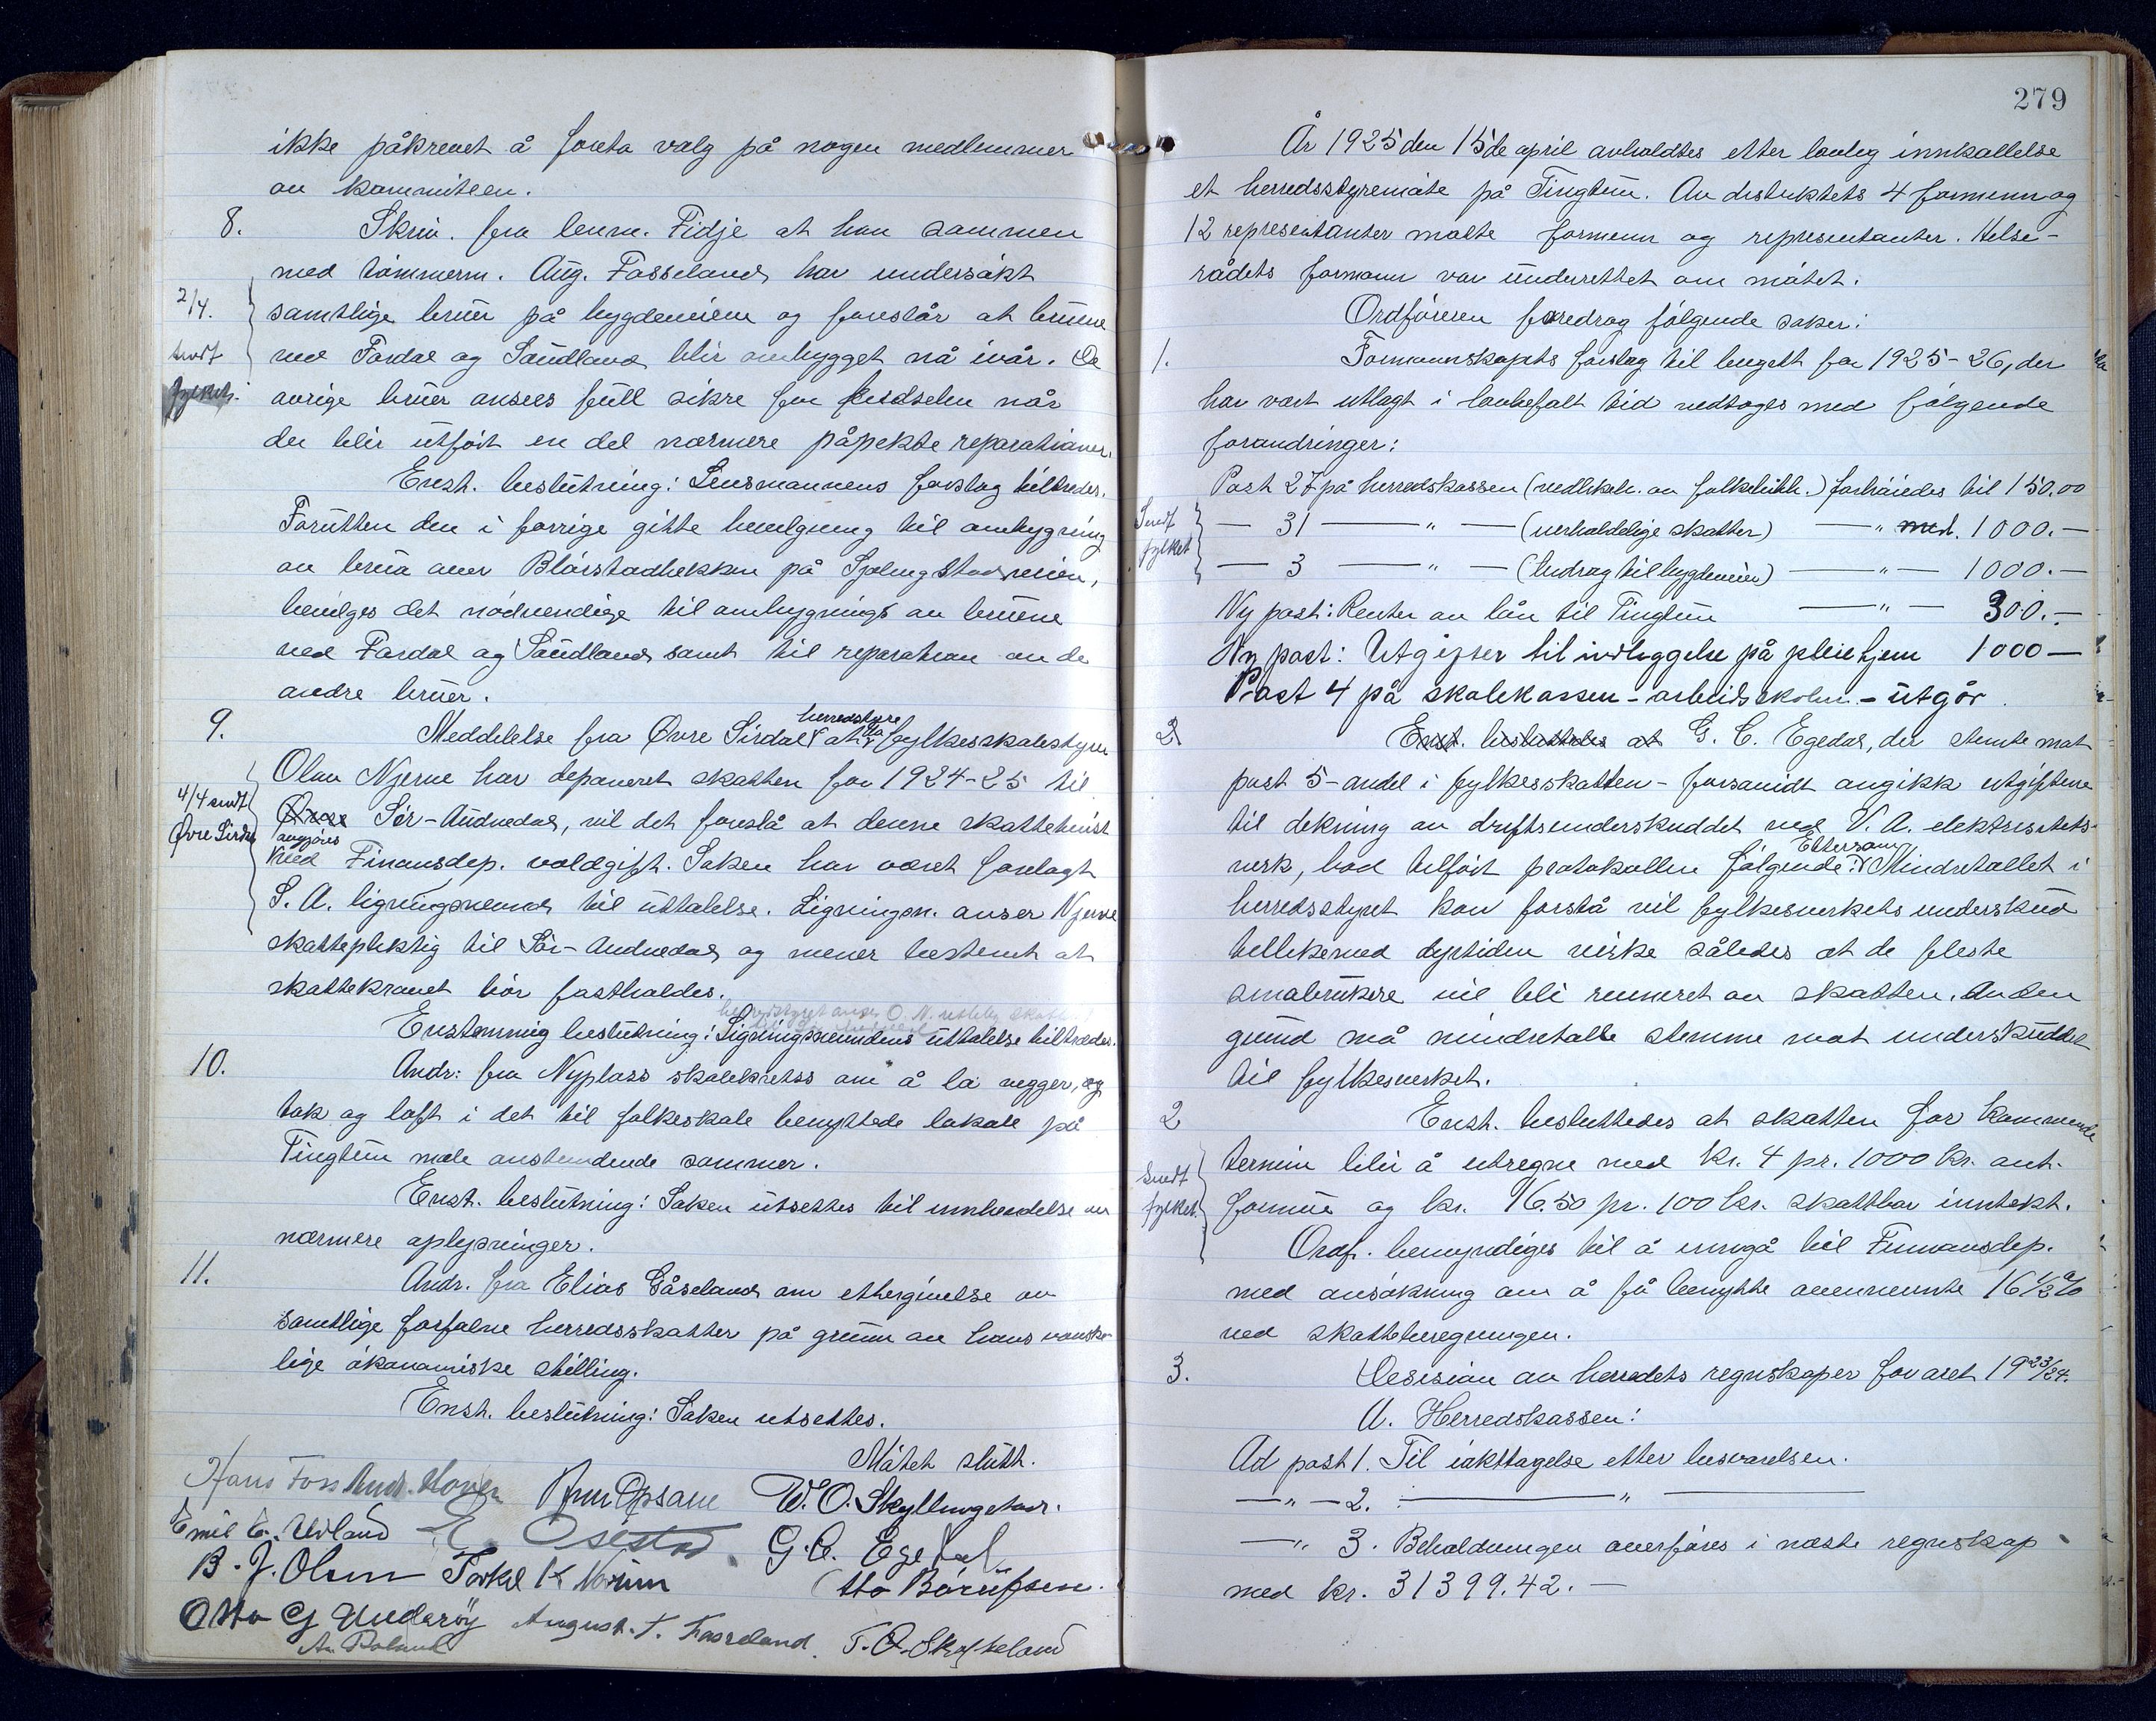 ikke påkrevet å foreta valg på nogen medlemmer
av kommiteen.
8. Skriv. fra lensm. Fidje at han sammen
med tømmerm. Aug. Fasseland har undersøkt
2/4. samtlige bruer på bygdeveiene og foreslår at bruene
sendt ved Fardal og Saudland blir ombygget nå ivår. De
fylket. øvrige bruer ansees full sikre for ferdselen når
der blir utført en del nærmere påpekte reparationer.
Enst. beslutning: Lensmannens forslag tiltredes.
Forutten den i forrige gitte bevilgning til ombygning
av brua over Blårstadbekken på Spilingstadveien,
bevilges det nødvendige til ombygning av bruene
ved Fardal og Saudland samt til reparation av de
andre bruer.
9. Meddelelse fra Øvre Sirdal herredstyre at da fylkesskatestyre
Olav Njerve har deponeret skatten for 1924-25 til
4/4 sendt Øvre Sør-Audnedal, vil det foreslå at denne skattetvist
Øvre Sirdal avgjøres
ved Finansdep. voldgift. Saken har været forelagt
S. A. ligningsnevnd til uttalelse. Ligningsn. anser Njerve
skattepliktig til Sør-Audnedal og mener bestemt at
skattekravet bør fastholdes.
herredstyret anser O. N.
Enstemmig beslutning: Ligningsnevndens uttalelse tiltrædes.
10. Andr: fra Nyplass skolekretss om å la vegger, og
tak og loft i det til folkeskole benyttede lokale på
Tingtun male anstundende sommer.
Enst. beslutning: Saken utsettes til innhendelse av
nærmere oplysninger.
11. Andr. fra Elias Gåseland om ettergivelse av
samtlige forfalne herredsskatter på grunn av hans vanske-
lige økonomiske stilling.
Enst. beslutning: Saken utsettes.
Møtet slutt.
Hans Foss Andr. Hoven Opsane W. O. Skyllingstad.
Emil E. Udland E. Osestad G. C. Egedal
B. J. Olsen Torkel K Norum Otto Bårufsen.
Otto G Underøy August. T. Fasseland. T. O. Skofteland
279
År 1925 den 15de april avholdtes etter lovlig innkallelse
et herredsstyremøte på Tingtun. Av distriktets 4 formenn og
12 representanter møtte formenn og representanter. Helse-
rådets formann var underrettet om møtet.
Ordføreren foredrog følgende saker:
1. Formannskapets forslag til bugett for 1925-26, der
har vært utlagt i lovbefalt tid vedtoges med følgende
forandringer:
Post 27 på herredskassen (vedlikeh. av folkebibl.) forhøiedes til 150.00
Sendt — 31 — " — (uerholdelige skatter) — " med. 1000.—
fylket — 3 — " — (bidrag til bygdeveier) — " — 1000.—
Ny post: Renter av lån til Tingtun — " — 300.—
Ny post: Utgifter til indleggelse på pleiehjem 1000—
Post 4 på skolekassen - arbeidsskolen - utgår.
2 Enst. besluttedes at G. C. Egedal, der stemte mot
post 5 - andel i fylkesskatten - forsavidt angikk utgiftene
til dekning av driftsunderskuddet ved V. A. elektrisitets-
verk, bad tilført protokollen følgende: Ettersom Mindretallet i
herredsstyret kan forstå vil fylkesverkets underskud
tillikemed dyrtiden virke således at de fleste
småbrukere vil bli ruineret av skatten. Av den
grund må mindretalle stemme mot underskuddet
til fylkesverket.
2 Enst. besluttedes at skatten for kommende
termin blir å utregne med kr. 4 pr. 1000 kr. ant.
Sendt
fylket. formue og kr. 16.50 pr. 100 kr. skattbar inntekt.
Ordf. bemyndiges til å inngå til Finansdep.
med ansøkning om å få benytte ovennevnte 16 1/2 %
ved skatteberegningen.
3. Desision av herredets regnskaper for året 1923/24.
A. Herredskassen:
Ad post 1. Til iakttagelse etter besvarelsen.
— " — 2. — " —
— " 3. Beholdningen overføres i næste regnskap
med kr. 31399.42.—